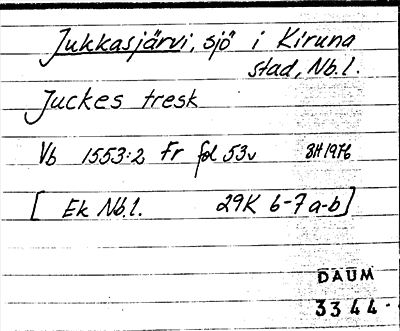 Jukkasjärvi, sjö i Kiruna
stad, Nb.l.
Juckes tresk
Vb 1553:2 Fr fol 53v BH 1976
[ Ek Nb.l. 29K 6-7 a-b]
DAUM
3344